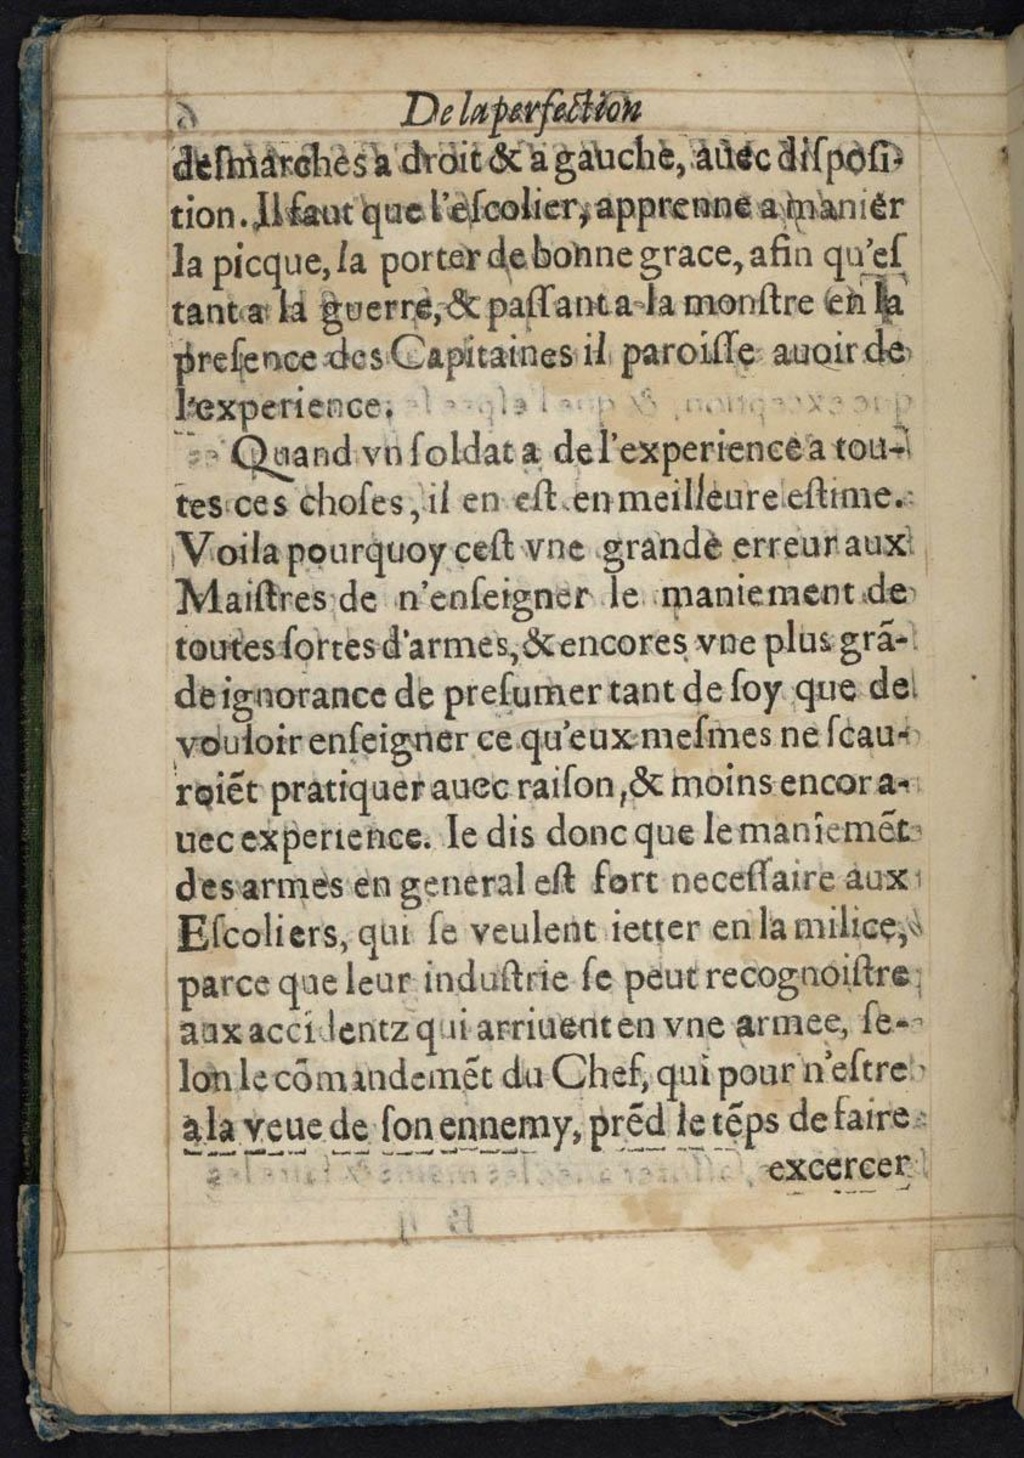 6 De la perfection
desmarches a droit & a gauche, auec disposi-
tion. Il faut que l'escolier, apprenne a manier
la picque, la porter de bonne grace, afin qu'es
tant a la guerre, & passant a la monstre en la
presence des Capitaines il paroisse auoir de
l'experience.
Quand vn soldat a de l'experience a tou-
tes ces choses, il en est en meilleure estime.
Voila pourquoy cest vne grande erreur aux
Maistres de n'enseigner le maniement de
toutes sortes d'armes, & encores vne plus grã-
de ignorance de presumer tant de soy que de
vouloir enseigner ce qu'eux mesmes ne scau-
roiẽt pratiquer auec raison, & moins encor a-
uec experience. Ie dis donc que le maniemẽt
des armes en general est fort necessaire aux
Escoliers, qui se veulent ietter en la milice,
parce que leur industrie se peut recognoistre
aux accidentz qui arriuent en vne armee, se-
lon le cõmandemẽt du Chef, qui pour n'estre
a la veue de son ennemy, prẽd le tẽps de faire
excercer